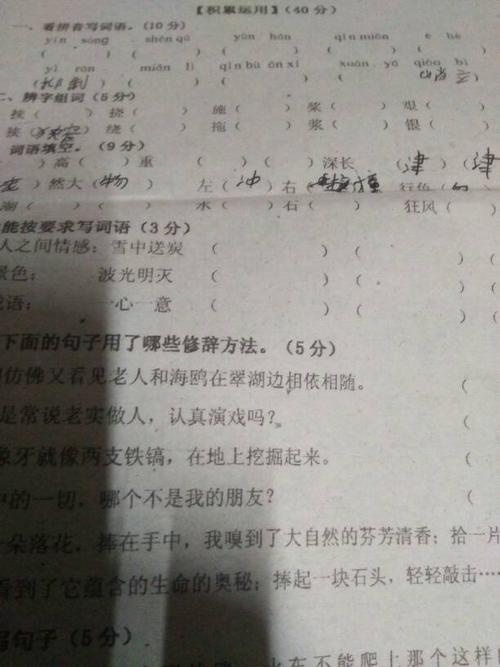 【积累运用】(40分)
一、看拼音写词语。(10分)
yín sòng shēn qū yūn hōn qīn mión
( ) ( ) ( ) ( ) (
yì rón mión lì qīn bù ōn xí xuōn yó qiōo bì
( ) ( ) ( ) (
二、辨字组词(5分)
挨( ) 挠( ) 施( ) 桨( ) 艰(
挨( ) 绕( ) 拖( ) 浆( ) 银(
词语填空。(9分)
)高( )重 ( )( )深长 (津)(津
)然大(物) 左(冲)右(撞) 行色(匆
潮( )( ) 水( )石( ) 狂风(
能按要求写词语(3分)
人之间情感:雪中送炭 ( ) (
景色: 波光明灭 ( ) (
语: 一心一意 ( ) (
下面的句子用了哪些修辞方法。(5分)
仿佛又看见老人和海鸥在翠湖边相依相随。 (
是常说老实做人,认真演戏吗? (
象牙就像两支铁镐,在地上挖掘起来。 (
中的一切,哪个不是我的朋友? (
一朵落花,捧在手中,我嗅到了大自然的芬芳清香;拾一片
看到了它蕴含的生命的奥秘;捧起一块石头,轻轻敲击……
写句子(5分)
火车不能爬上那个这样